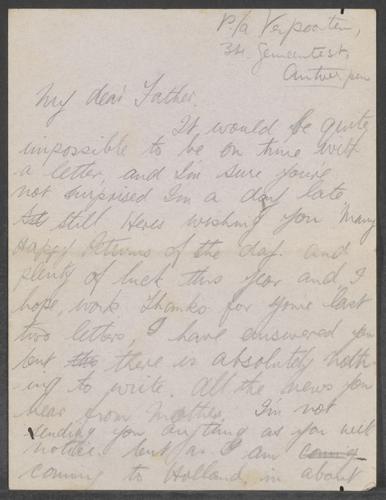 P/a Verpoorten,
34. Gemeentestr,
Antwerpen
My dear Father.
It would be quite
impossible to be on time with
a letter, and I'm sure you're
not surprised I'm a day late
still Heres wishing you "Many
Happy Returns of the day. and
plenty of luck this year and I
hope, work. Thanks for your last
two letters, I have answered you
but there is absolutely noth-
ing to write. All the news you
hear from Mother, I'm not
sending you anything as you will
notice but as I am coming
coming to Holland, in about